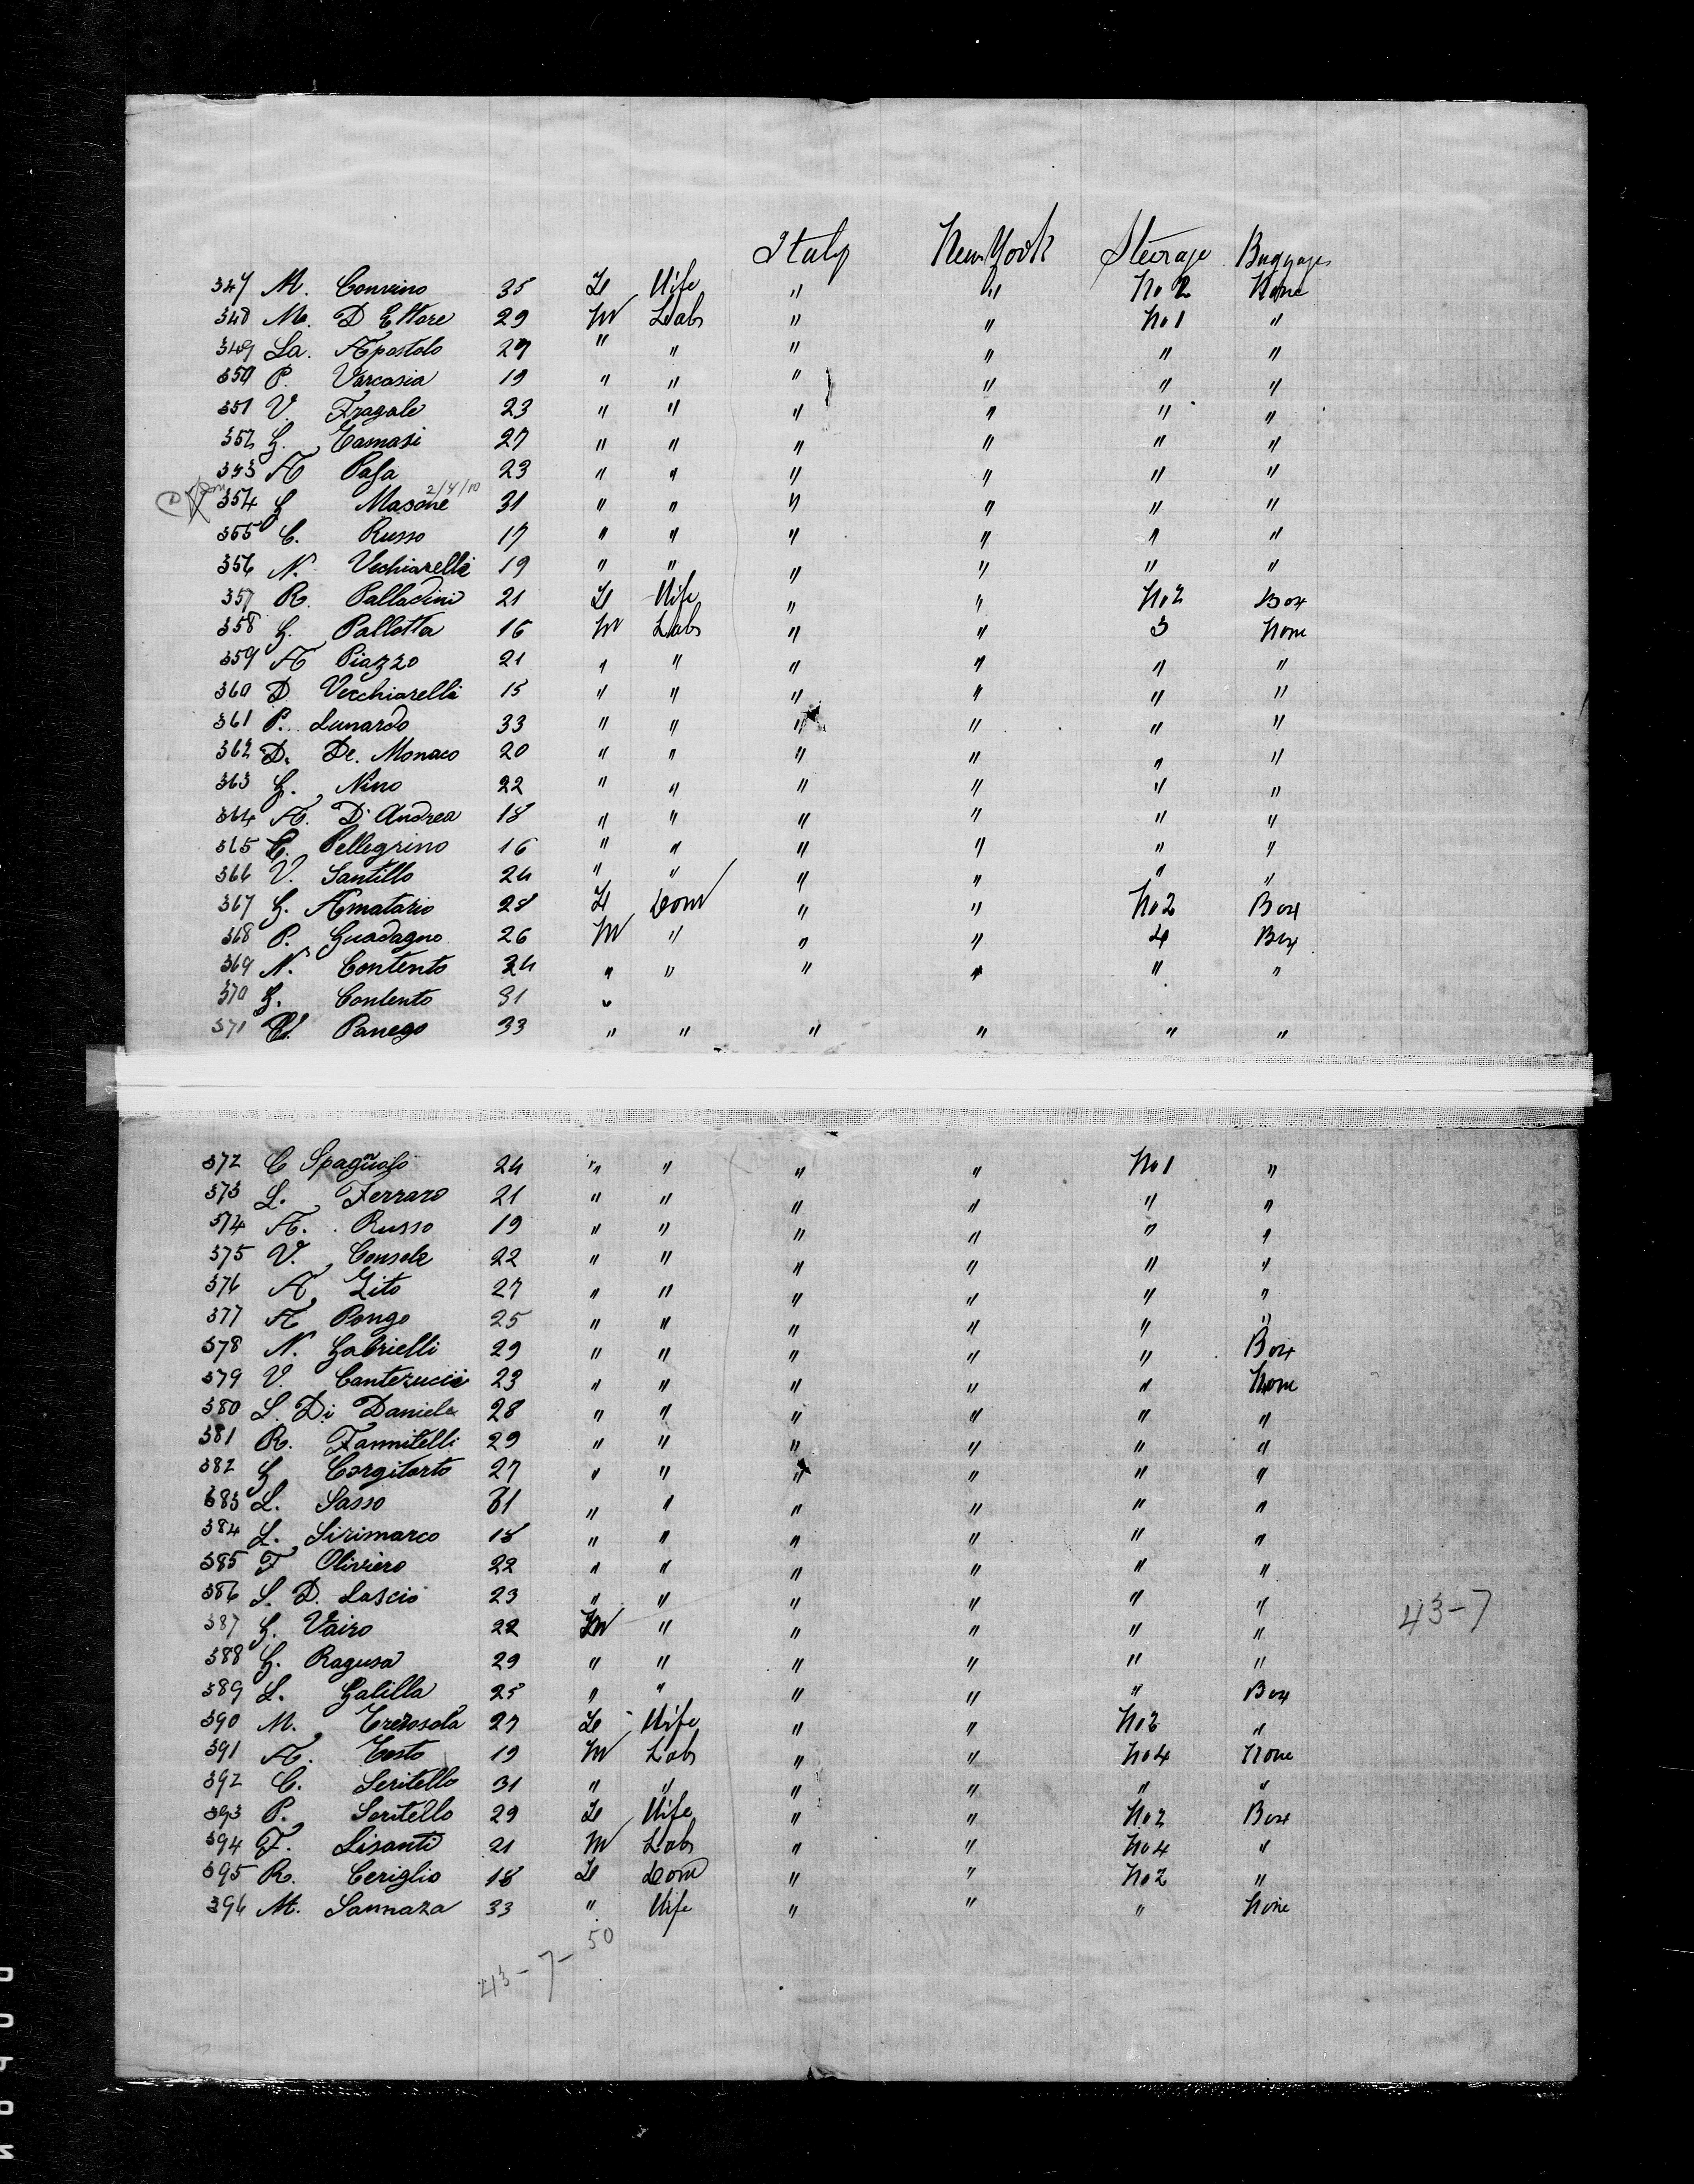 Italy New York Steerage Baggage
347 M. Convino 35 F Wife " " No 2 None
348 M. D Ettore 29 M Lab " " No 1 "
349 La. Apostolo 27 " " " " " "
350 P. Varcasia 19 " " " " " "
351 V. Fragale 23 " " " " " "
352 G. Tamasi 27 " " " " " "
353 A Pasa 23 " " " " " "
354 G Masone 2/4/10 31 " " " " " "
355 C. Russo 17 " " " " " "
356 N. Vechiarelli 19 " " " " " "
357 R. Palladini 21 F Wife " " No 2 Box
358 G. Pallotta 16 M Lab " " 3 None
359 A Piazzo 21 " " " " " "
360 D Vecchiarelli 15 " " " " " "
361 P. Lunardo 33 " " " " " "
362 D. De. Monaco 20 " " " " " "
363 G. Nino 22 " " " " " "
364 A. D'Andrea 18 " " " " " "
365 C. Pellegrino 16 " " " " " "
366 V. Santillo 24 " " " " " "
367 G. Amatario 28 F Dom " " No 2 Box
368 P. Guadagno 26 M " " " 4 Box
369 N. Contento 34 " " " " " "
370 G. Contento 31 "
371 V. Panego 33 " " " " " "
372 C Spagñolo 24 " " " " No 1 "
373 L. Ferraro 21 " " " " " "
374 A. Russo 19 " " " " " "
375 V. Console 22 " " " " " "
376 A Zito 27 " " " " " "
377 A Pongo 25 " " " " " "
378 N. Gabrielli 29 " " " " " Box
379 V. Canterucci 23 " " " " " None
380 L. Di Daniele 28 " " " " " "
381 R. Fannitelli 29 " " " " " "
382 G Corgitorto 27 " " " " " "
383 L. Sasso 31 " " " " " "
384 L. Sirimarco 18 " " " " " "
385 F Oliviero 22 " " " " " "
386 L. D. Lascio 23 " " " " " "
387 G. Vairo 22 M " " " " " 43-7
388 G. Ragusa 29 " " " " " "
389 L. Galilla 25 " " " " " Box
390 M. Trerosola 27 F Wife " " No 2 "
391 A. Testo 19 M Lab " " No 4 None
392 C. Seritello 31 " " " " " "
393 P. Seritello 29 F Wife " " No 2 Box
394 F. Lisanti 21 M Lab " " No 4 "
395 R. Ceriglio 18 F Dom " " No 2 "
396 M. Sannaza 33 " Wife " " " None
43-7-50